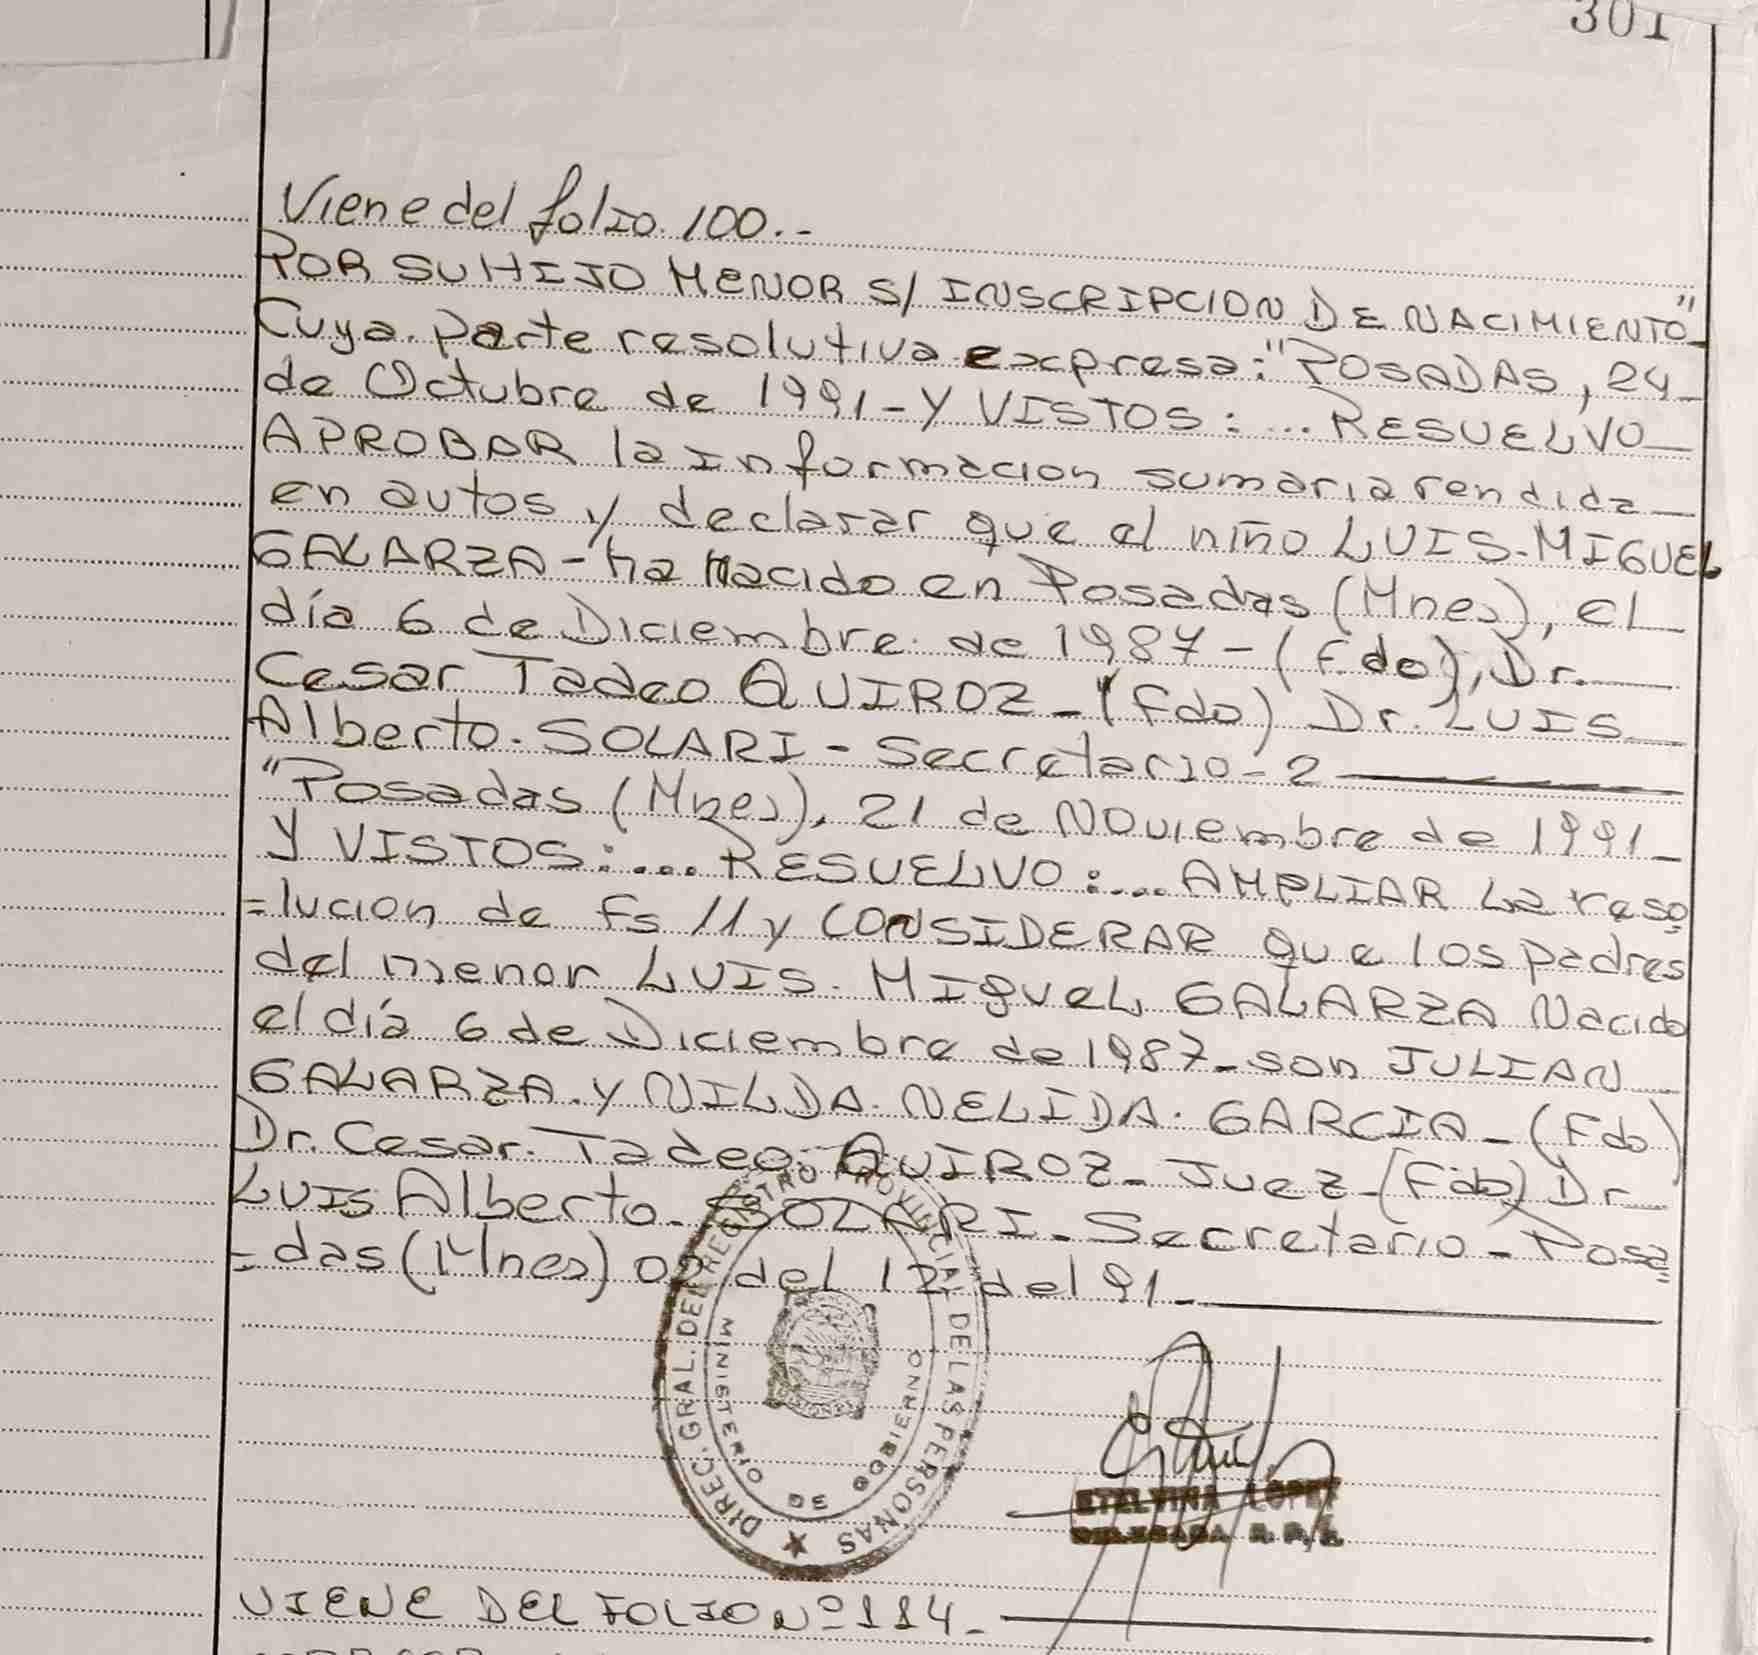 301
Viene del folio 100.-
POR SU HIJO MENOR S/ INSCRIPCION DE NACIMIENTO"
Cuya parte resolutiva expresa: "POSADAS, 24
de Octubre de 1991 - Y VISTOS: ... RESUELVO
APROBAR la informacion sumaria rendida
en autos y declarar que el niño LUIS MIGUEL
GALARZA - ha nacido en Posadas (Mnes), el
día 6 de Diciembre de 1987 - (fdo), Dr.
Cesar Tadeo QUIROZ - (Fdo) Dr. LUIS
Alberto SOLARI - Secretario - 2
"Posadas (Mnes), 21 de Noviembre de 1991 -
Y VISTOS: ... RESUELVO: ... AMPLIAR La reso
=lucion de Fs 11 y CONSIDERAR que los padres
del menor LUIS MIGUEL GALARZA Nacido
el día 6 de Diciembre de 1987 - son JULIAN
GALARZA y NILDA NELIDA GARCIA - (Fdo)
Dr. Cesar Tadeo QUIROZ - Juez - (Fdo) Dr
LUIS Alberto SOLARI - Secretario - Posa
=das (Mnes) 02 del 12 del 91 -
DIREC. GRAL. DEL REGISTRO PROVINCIAL DE LAS PERSONAS
MINISTERIO DE GOBIERNO
ETELVINA LOPEZ
DELEGADA R.P.
VIENE DEL FOLIO Nº 114 -